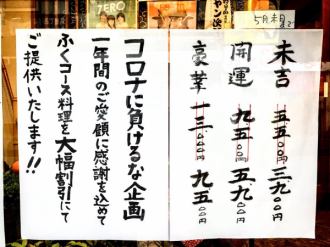 5月末
末吉 五五〇〇円 三九〇〇円
開運 九五〇〇円 五九〇〇円
豪華 十三、〇〇〇円 九五〇〇円
コロナに負けるな企画
一年間のご愛顧に感謝を込めて
ふくコース料理を大幅割引にて
ご提供いたします!!
ZERO